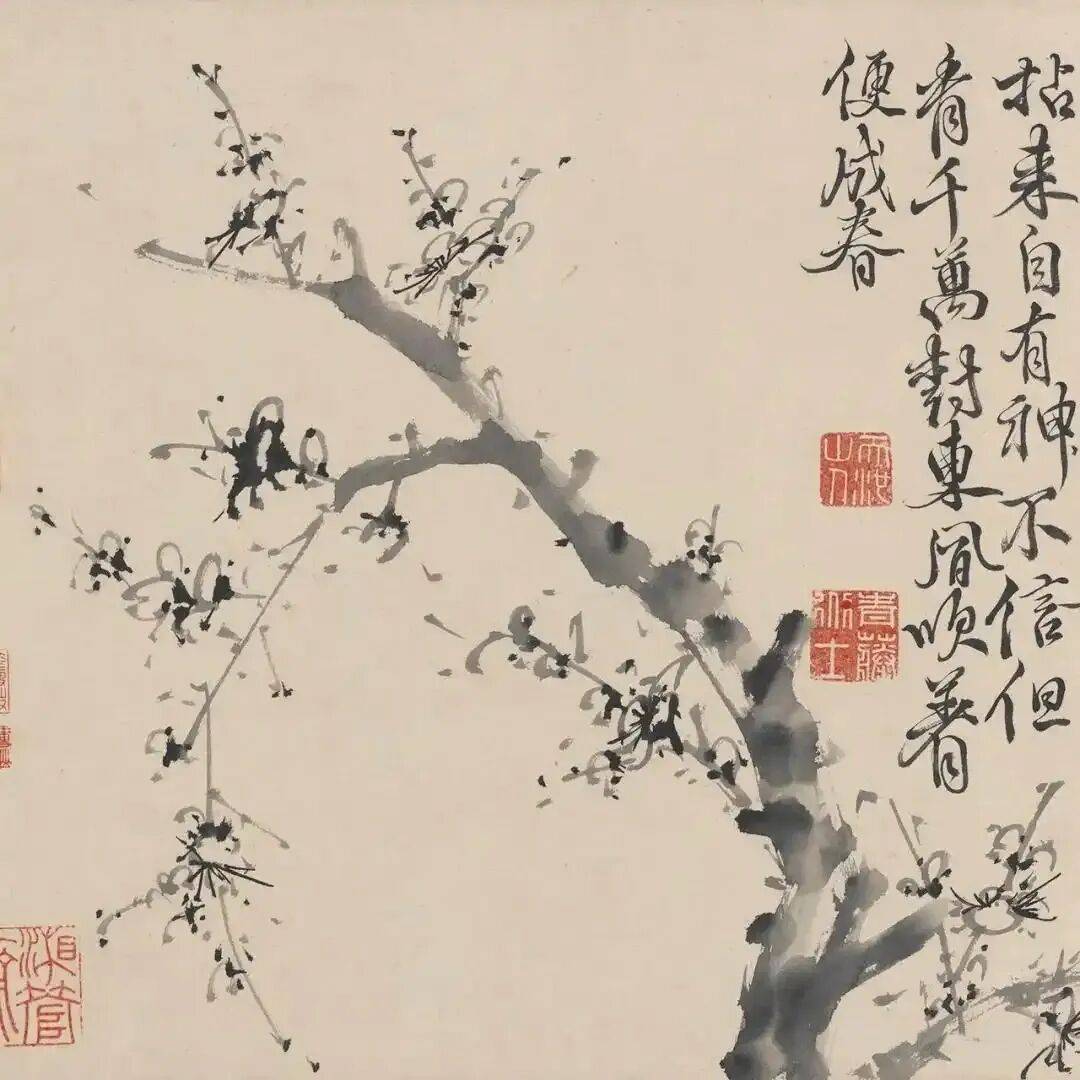 拈来自有神不信但
看千萬樹東風吹着
便成春
天池山人
青藤道士
湘管